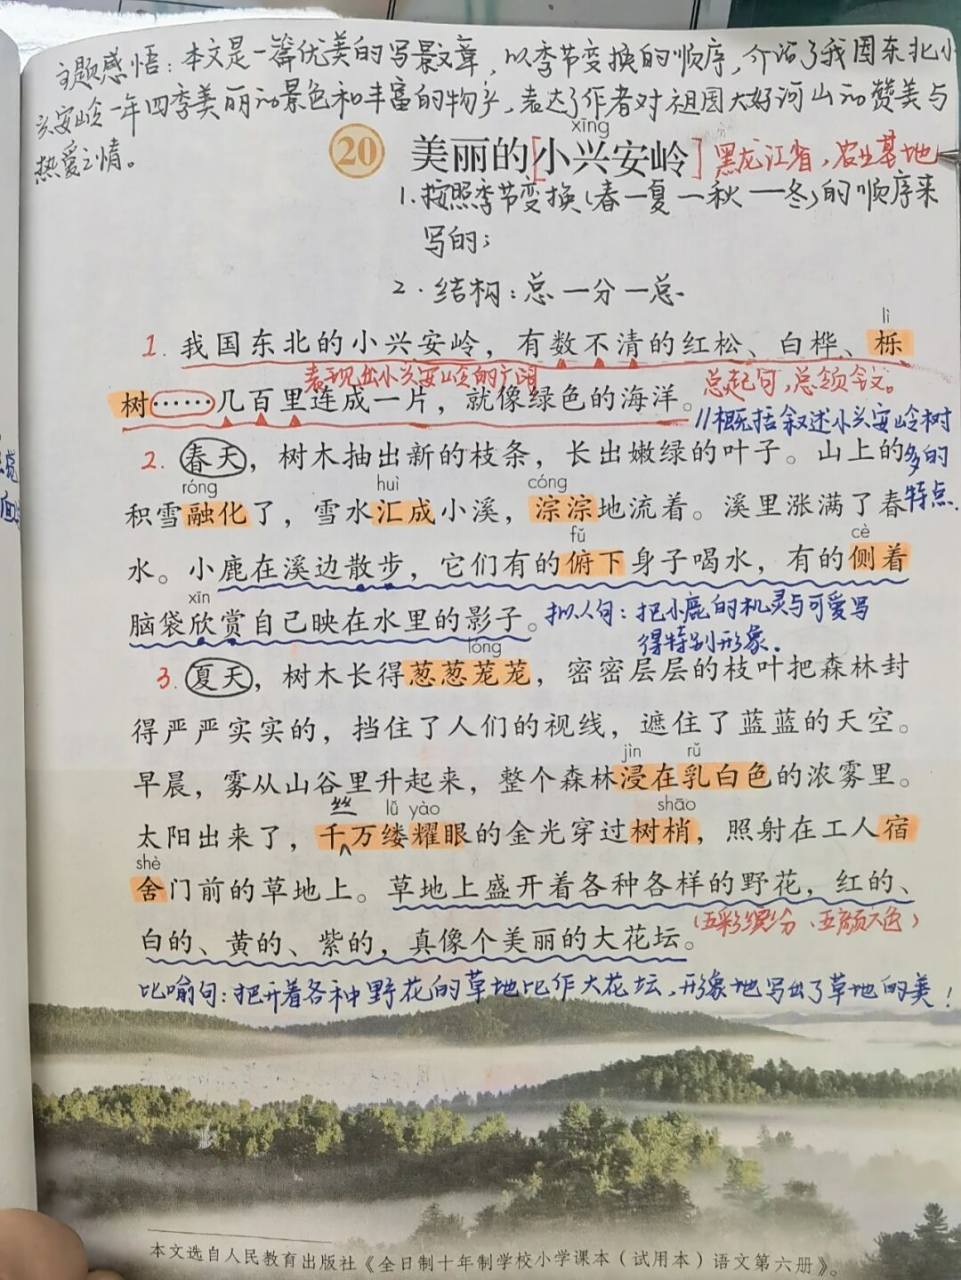 主题感悟：本文是一篇优美的写景文章，以季节变换的顺序，介绍了我国东北小
兴安岭一年四季美丽的景色和丰富的物产，表达了作者对祖国大好河山的赞美与
热爱之情。
xīng
20 美丽的[小兴安岭] 黑龙江省，农业基地
1.按照季节变换（春—夏—秋—冬）的顺序来
写的；
2.结构：总—分—总.
lì
1. 我国东北的小兴安岭，有数不清的红松、白桦、栎
表现出小兴安岭的广阔 总起句，总领全文。
树……几百里连成一片，就像绿色的海洋。
//概括叙述小兴安岭树
多的
特点.
2. 春天，树木抽出新的枝条，长出嫩绿的叶子。山上的
róng huì cóng
积雪融化了，雪水汇成小溪，淙淙地流着。溪里涨满了春
fǔ cè
水。小鹿在溪边散步，它们有的俯下身子喝水，有的侧着
xīn
脑袋欣赏自己映在水里的影子。
拟人句：把小鹿的机灵与可爱写
得特别形象.
lóng
3. 夏天，树木长得葱葱茏茏，密密层层的枝叶把森林封
得严严实实的，挡住了人们的视线，遮住了蓝蓝的天空。
jìn rǔ
早晨，雾从山谷里升起来，整个森林浸在乳白色的浓雾里。
丝 lǚ yào shāo
太阳出来了，千万缕耀眼的金光穿过树梢，照射在工人宿
shè
舍门前的草地上。草地上盛开着各种各样的野花，红的、
白的、黄的、紫的，真像个美丽的大花坛。
（五彩缤纷、五颜六色）
比喻句：把开着各种野花的草地比作大花坛，形象地写出了草地的美！
本文选自人民教育出版社《全日制十年制学校小学课本（试用本）语文第六册》。